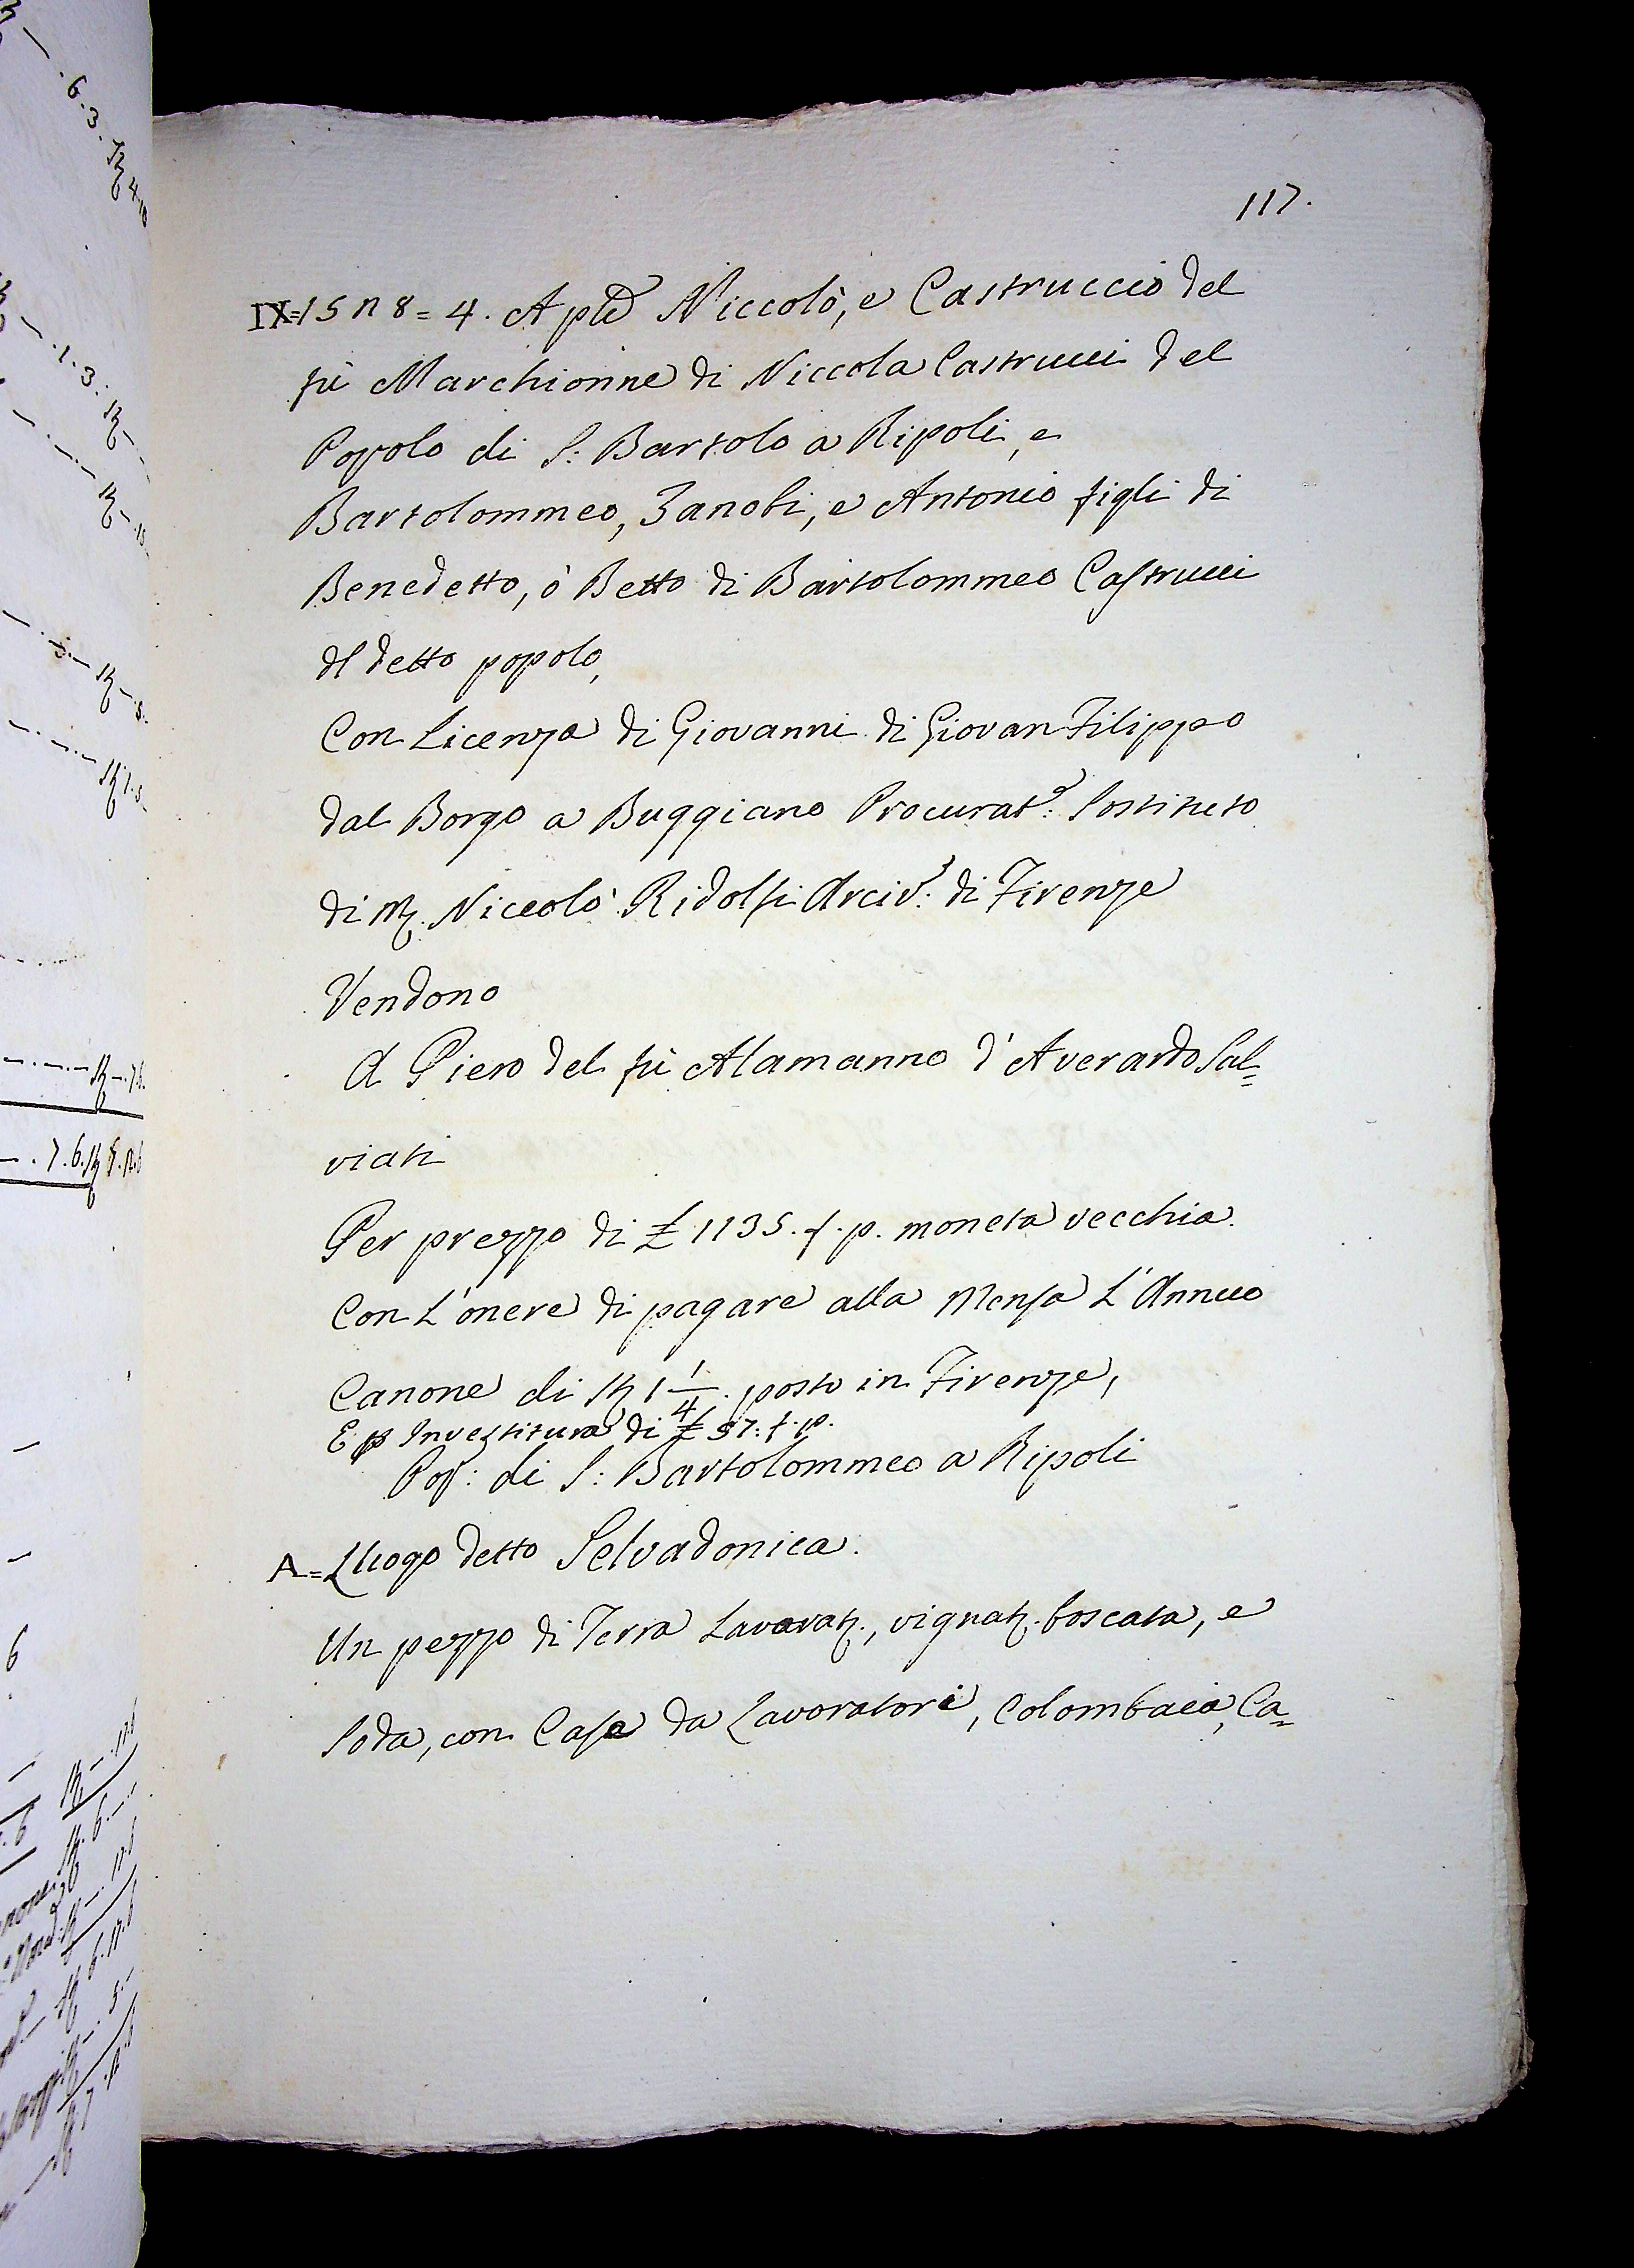 117.
IX=1528=4. Aple Niccolò, e Castruccio del
fù Marchionne di Niccola Castrucci del
Popolo di S: Bartolo a Ripoli, e
Bartolommeo, Zanobi, e Antonio figli di
Benedetto, ò Betto di Bartolommeo Castrucci
dl detto popolo,
Con Licenza di Giovanni di Giovan Filippo
dal Borgo a Buggiano Procurat.e: Sostituto
di M. Niccolò Ridolfi Arciv.: di Firenze
Vendono
A Piero del fù Alamanno d'Averardo Sal=
viati
Per prezzo di £ 1135. f. p. moneta vecchia.
Con L'onere di pagare alla Mensa L'Annuo
Canone di 1 1/4. posto in Firenze,
E p Investitura di £ 57: f. p.
Pop: di S: Bartolommeo a Ripoli
A= Luogo detto Selvadonica.
Un pezzo di Terra Lavorat., vignat. boscata, e
Soda, con Casa da Lavoratore, Colombaia, Ca=